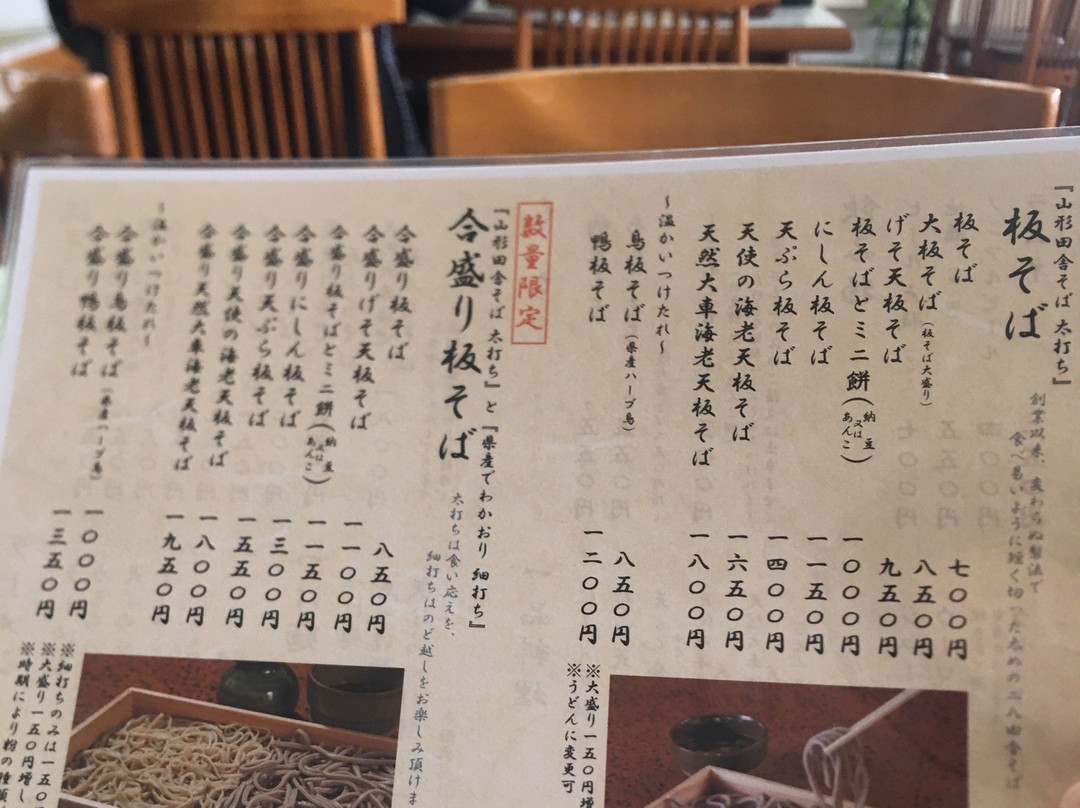 「山形田舎そば 太打ち」
板そば
創業以来、変わらぬ製法で
食べ易いように短く切った太めの二八田舎そば
板そば 七〇〇円
大板そば(板そば大盛り) 八五〇円
げそ天板そば 九五〇円
板そばとミニ餅(納豆又はあんこ) 一〇〇〇円
にしん板そば 一一五〇円
天ぷら板そば 一四〇〇円
天使の海老天板そば 一六五〇円
天然大車海老天板そば 一八〇〇円
~温かいつけたれ~
鳥板そば(県産ハーブ鳥) 八五〇円
鴨板そば 一二〇〇円
※大盛り一五〇円増
※うどんに変更可
数量限定
「山形田舎そば 太打ち」と『県産でわかおり 細打ち』
合盛り板そば
太打ちは食い応えを、
細打ちはのど越しをお楽しみ頂けま
合盛り板そば 八五〇円
合盛りげそ天板そば 一一〇〇円
合盛り板そばとミニ餅(納豆又はあんこ) 一一五〇円
合盛りにしん板そば 一三〇〇円
合盛り天ぷら板そば 一五五〇円
合盛り天使の海老天板そば 一八〇〇円
合盛り天然大車海老天板そば 一九五〇円
~温かいつけたれ~
合盛り鳥板そば(県産ハーブ鳥) 一〇〇〇円
合盛り鴨板そば 一三五〇円
※細打ちのみは一五〇
※大盛り一五〇円増し
※時期により粉の種類